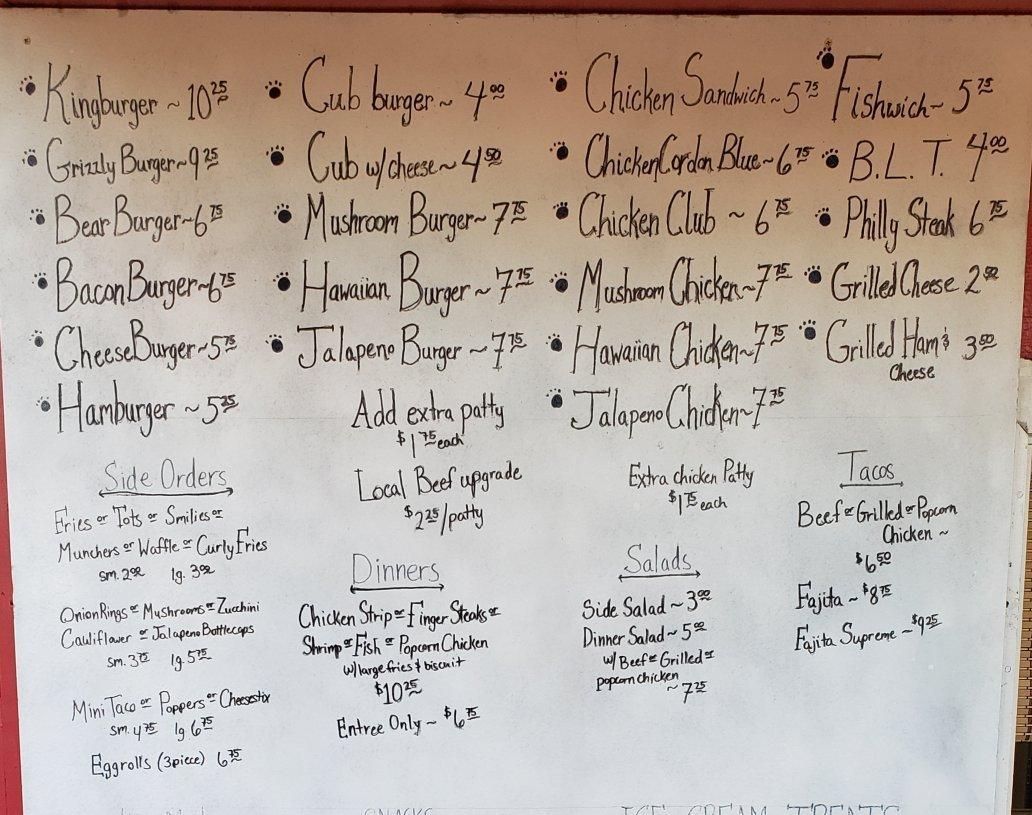 Kingburger ~ 10 25
Grizzly Burger ~ 9 25
Bear Burger ~ 6 75
Bacon Burger ~ 6 75
Cheese Burger ~ 5 75
Hamburger ~ 5 25
Cub burger ~ 4 00
Cub w/ cheese ~ 4 50
Mushroom Burger ~ 7 75
Hawaiian Burger ~ 7 75
Jalapeno Burger ~ 7 75
Add extra patty
$1 75 each
Local Beef upgrade
$2 25/patty
Chicken Sandwich ~ 5 75
Chicken Cordon Blue ~ 6 75
Chicken Club ~ 6 75
Mushroom Chicken ~ 7 75
Hawaiian Chicken ~ 7 75
Jalapeno Chicken ~ 7 75
Extra chicken Patty
$1 75 each
Fishwich ~ 5 75
B.L.T. 4 00
Philly Steak 6 75
Grilled Cheese 2 50
Grilled Ham & 3 50
Cheese
Side Orders
Fries or Tots or Smilies or
Munchers or Waffle or Curly Fries
sm. 2 00 lg. 3 00
Onion Rings or Mushrooms or Zucchini
Cauliflower or Jalapeno Bottlecaps
sm. 3 75 lg. 5 75
Mini Taco or Poppers or Cheesestix
sm. 4 75 lg 6 75
Eggrolls (3 piece) 6 75
Dinners
Chicken Strip or Finger Steaks or
Shrimp or Fish or Popcorn Chicken
w/ large fries & biscuit
$10 25
Entree Only ~ $6 75
Salads
Side Salad ~ 3 00
Dinner Salad ~ 5 00
w/ Beef or Grilled or
popcorn chicken
~ 7 25
Tacos
Beef or Grilled or Popcorn
Chicken ~
$6 50
Fajita ~ $8 75
Fajita Supreme ~ $9 25
SNACKS
ICE CREAM TREATS